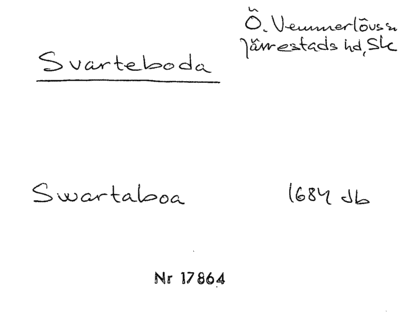 Svarteboda
Ö. Vemmerlövs sn
Järrestads hd, Sk
Swartaboa 1684 Jb
Nr 17864